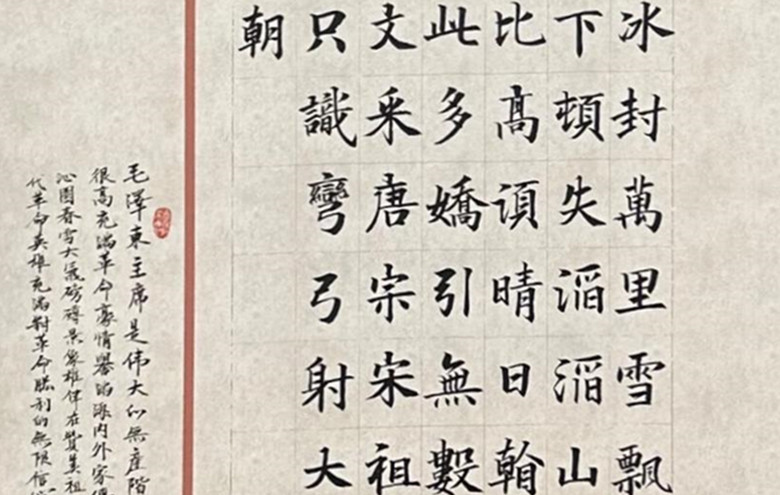 冰封萬里雪飄
下頓失滔滔山
比高須晴日翰
此多嬌引無數
文采唐宗宋祖
只識彎弓射大
朝
毛澤東主席是伟大的無產階
很高充滿革命豪情譽滿海内外家
沁園春雪大氣磅礴景象雄偉在贊美祖
代革命英雄充滿對革命勝利的無限信